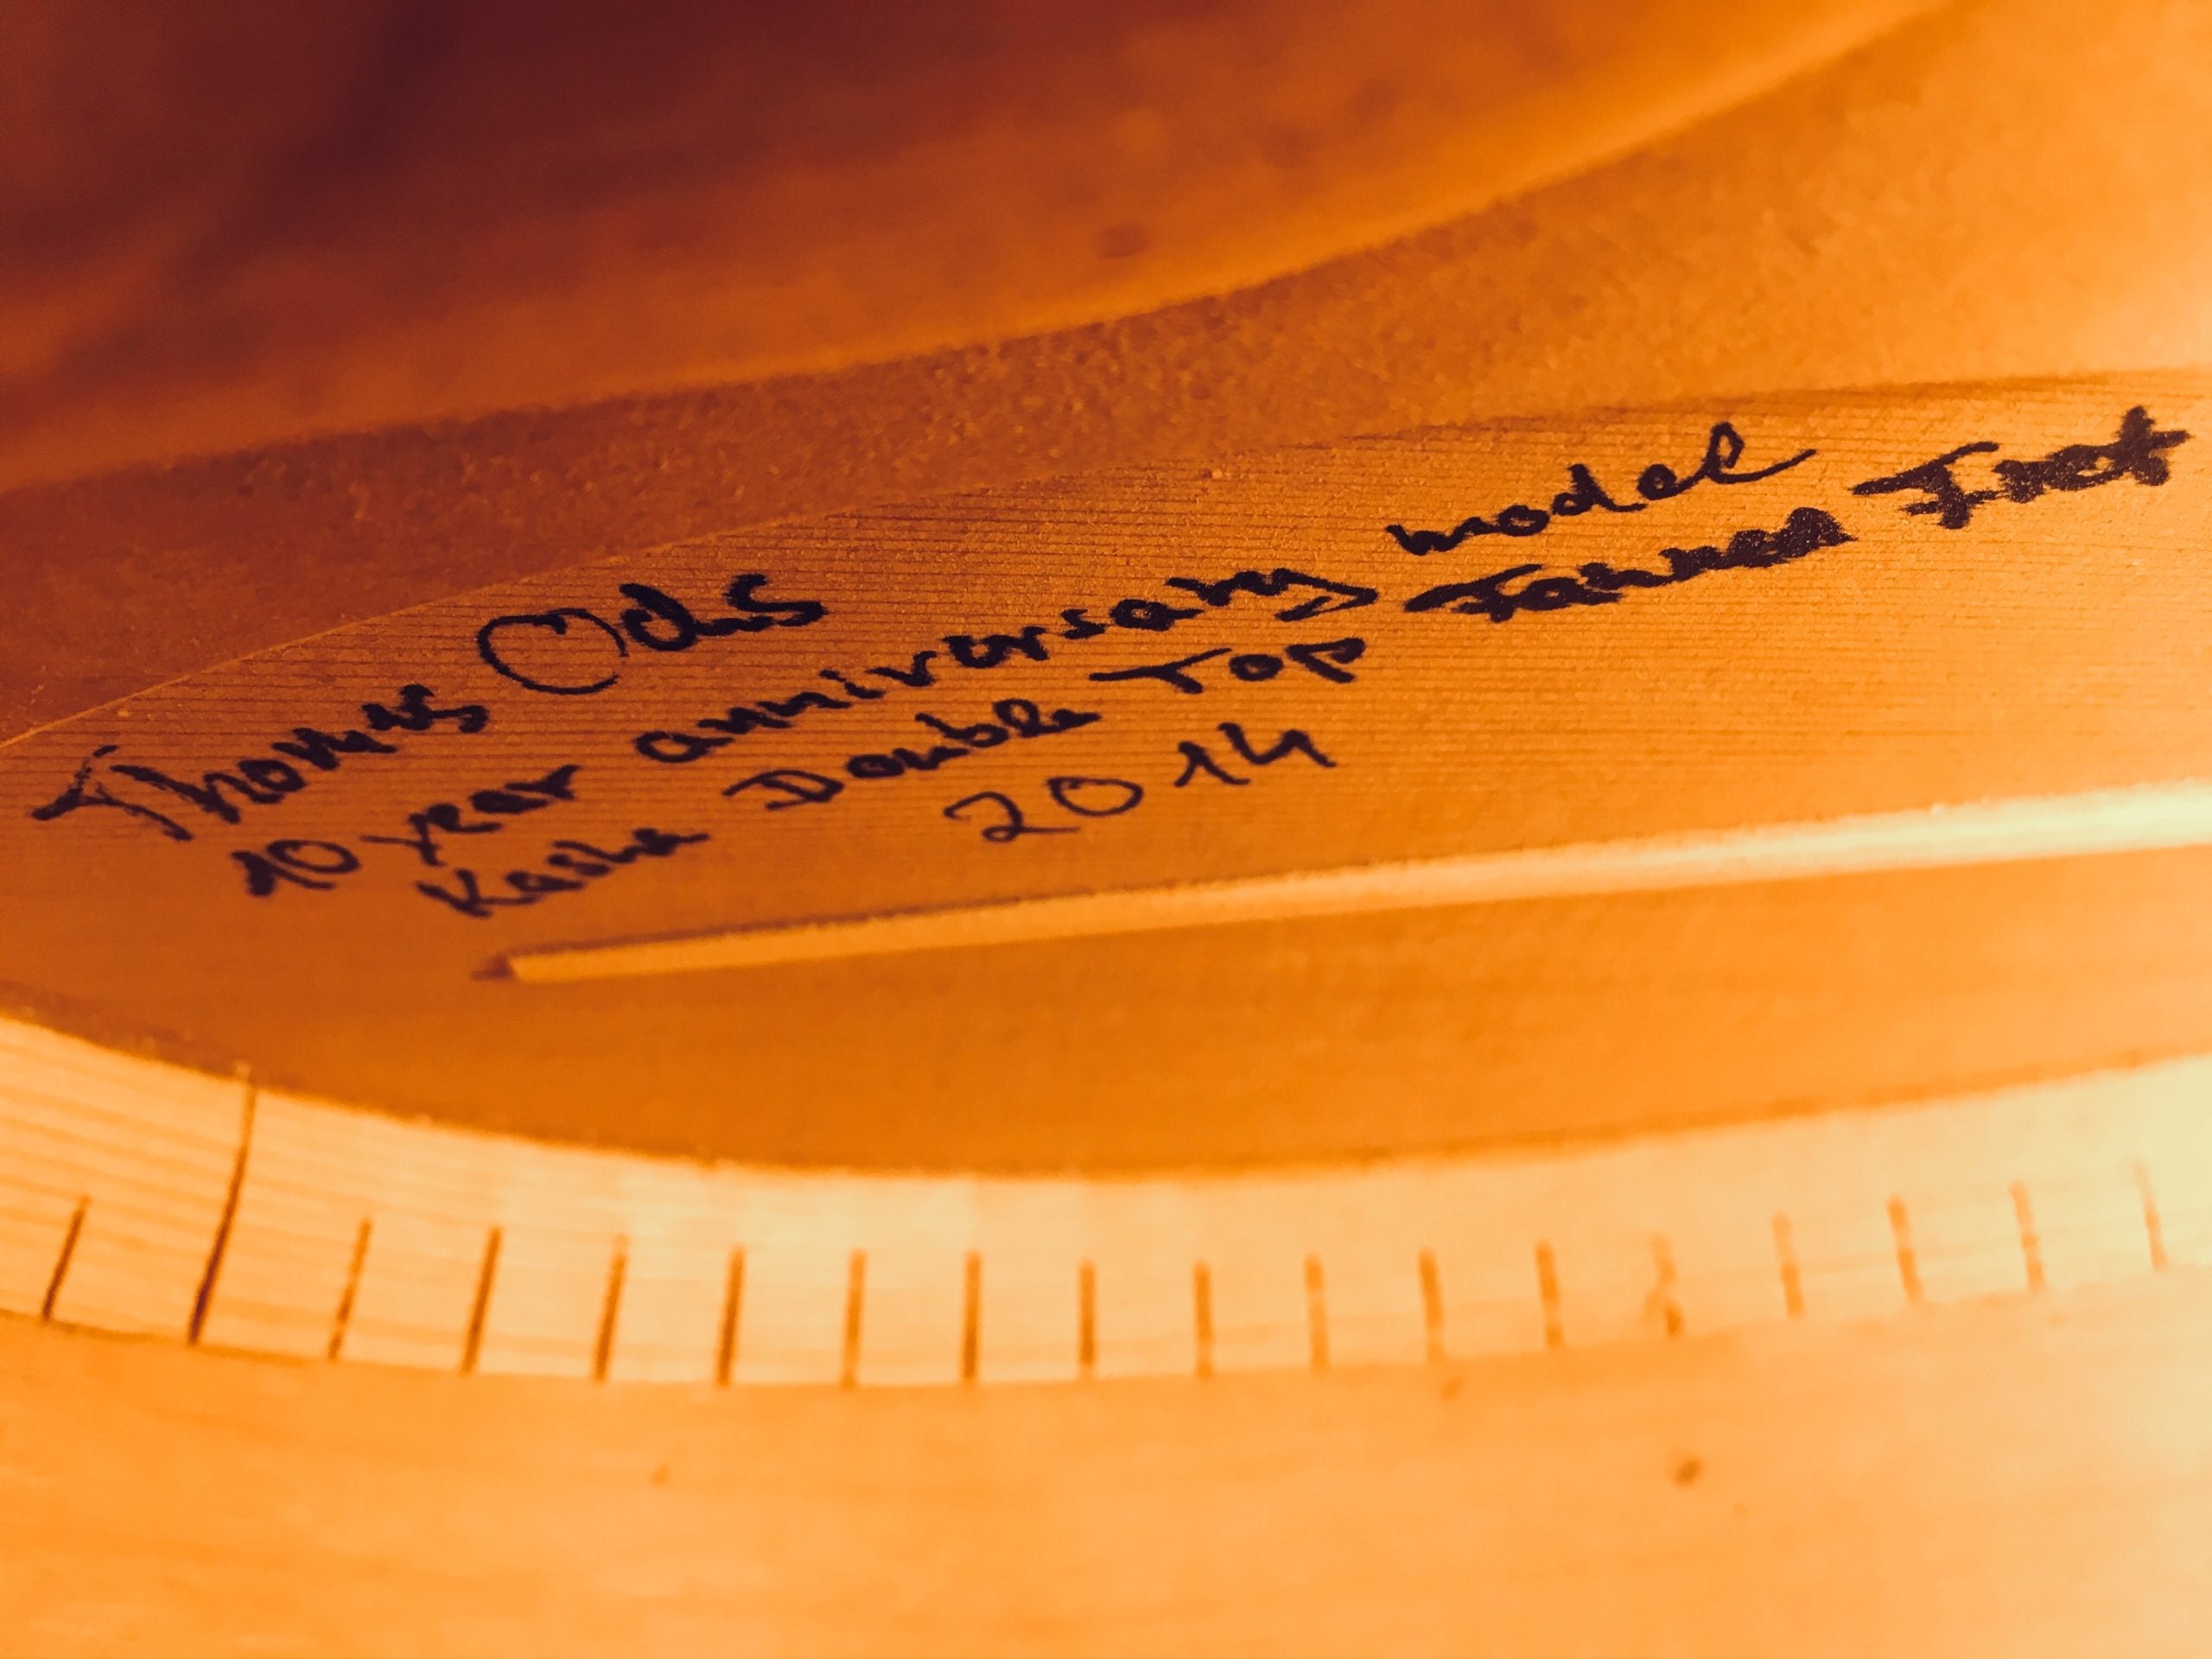 Thomas Ochs
10 year anniversary model
Kasha Double Top Fanned Fret
2014